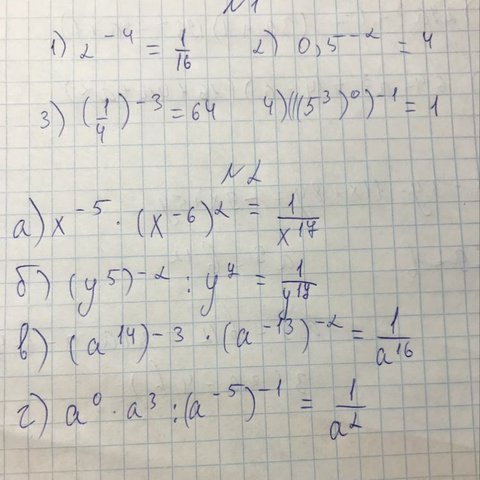 №1
1) 2^-4 = 1/16 2) 0,5^-2 = 4
3) (1/4)^-3 = 64 4) (((5^3)^0)^-1 = 1
№2
а) x^-5 · (x^-6)^2 = 1/x^17
б) (y^5)^-2 : y^7 = 1/y^17
в) (a^14)^-3 · (a^-13)^-2 = 1/a^16
г) a^0 · a^3 : (a^-5)^-1 = 1/a^2